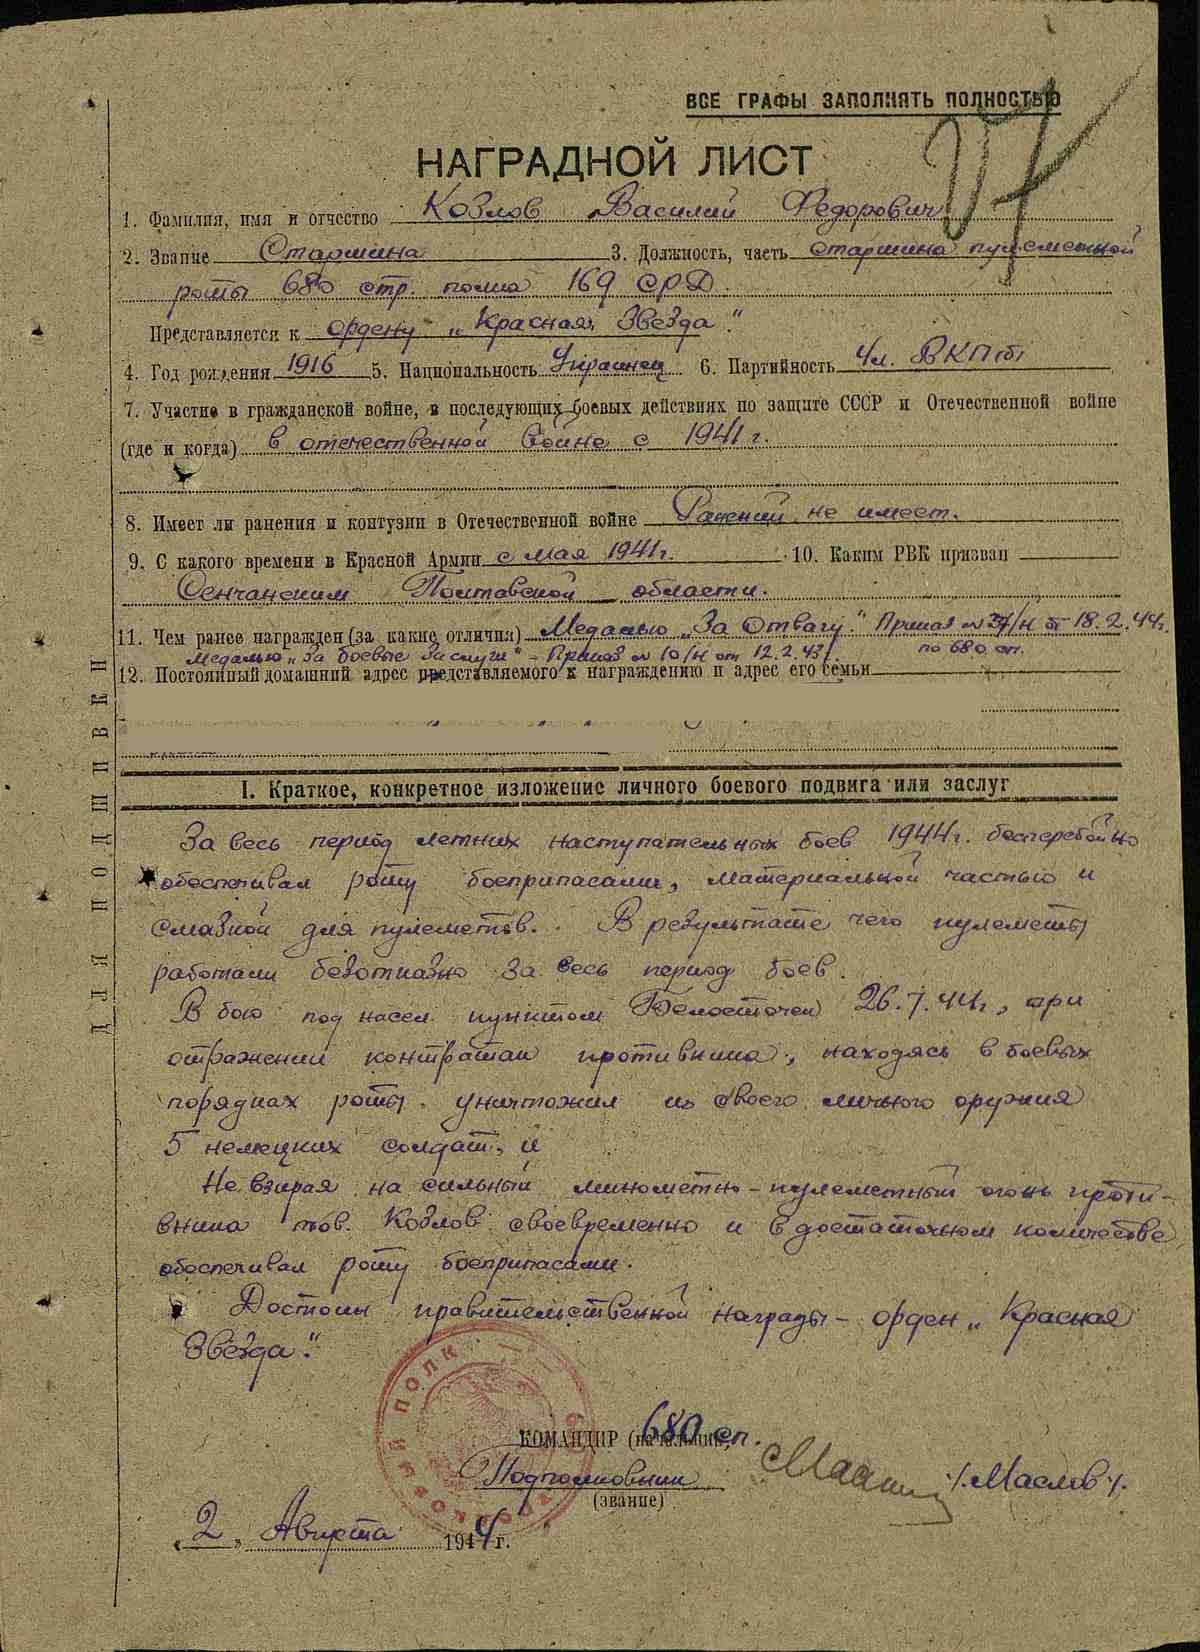 ВСЕ ГРАФЫ ЗАПОЛНЯТЬ ПОЛНОСТЬЮ
НАГРАДНОЙ ЛИСТ
1. Фамилия, имя и отчество Козлов Василий Федорович
2. Звание Старшина 3. Должность, часть старшина пулеметной
роты 680 стр. полка 169 СРД.
Представляется к ордену „Красная Звезда".
4. Год рождения 1916 5. Национальность Украинец 6. Партийность Чл. ВКП(б)
7. Участие в гражданской войне, в последующих боевых действиях по защите СССР и Отечественной войне
(где и когда) в отечественной войне с 1941 г.
8. Имеет ли ранения и контузии в Отечественной войне Ранений не имеет.
9. С какого времени в Красной Армии с мая 1941 г. 10. Каким РВК призван
Сенчанским Полтавской области.
11. Чем ранее награжден (за какие отличия) Медалью „За Отвагу". Приказ № /н от 18.2.44г.
Медалью „За боевые Заслуги" - Приказ № 10/н от 12.2.43г. по 680 сп.
12. Постоянный домашний адрес представляемого к награждению и адрес его семьи
ДЛЯ ПОДШИВКИ
I. Краткое, конкретное изложение личного боевого подвига или заслуг
За весь период летних наступательных боев 1944г. бесперебойно
обеспечивал роту боеприпасами, материальной частью и
смазкой для пулеметов. В результате чего пулеметы
работали безотказно за весь период боев.
В бою под насел. пунктом Белосточек 26.7.44г., при
отражении контратак противника, находясь в боевых
порядках роты уничтожил из своего личного оружия
5 немецких солдат, и
Не взирая на сильный минометно-пулеметный огонь проти-
вника тов. Козлов своевременно и в достаточном количестве
обеспечивал роту боеприпасами.
Достоин правительственной награды - орден „Красная
Звезда".
КОМАНДИР (начальник) 680 сп.
Подполковник /Маслов/.
(звание)
„2„ Августа 1944 г.
СТРЕЛКОВЫЙ ПОЛК